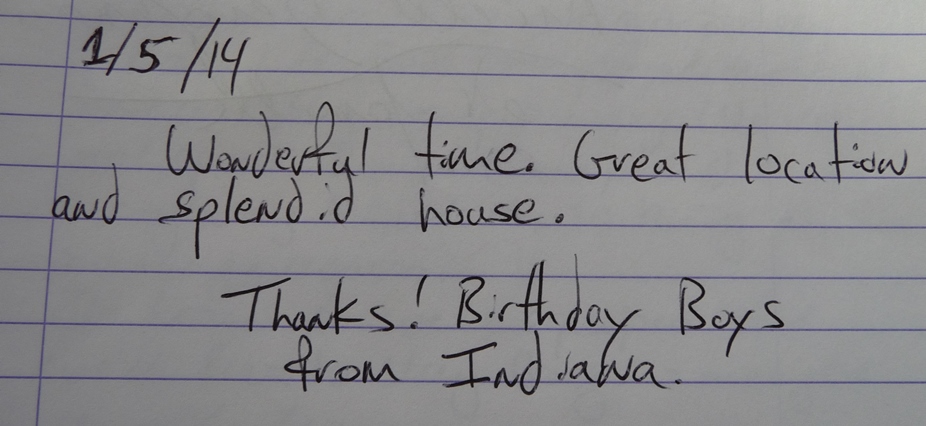 1/5/14
Wonderful time. Great location
and splendid house.
Thanks! Birthday Boys
from Indiana.